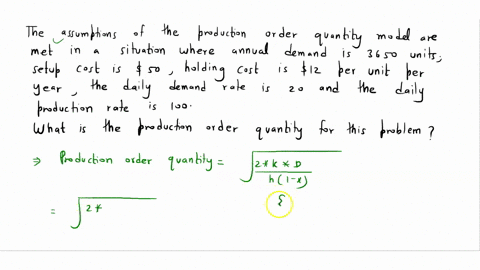 The assumptions of the production order quantity model are
met in a situation where annual demand is 3650 units,
setup cost is $50, holding cost is $12 per unit per
year, the daily demand rate is 20 and the daily
production rate is 100.
What is the production order quantity for this problem?
⇒ Production order quantity = √(2*K*D / h(1-x))
= √(2*
{